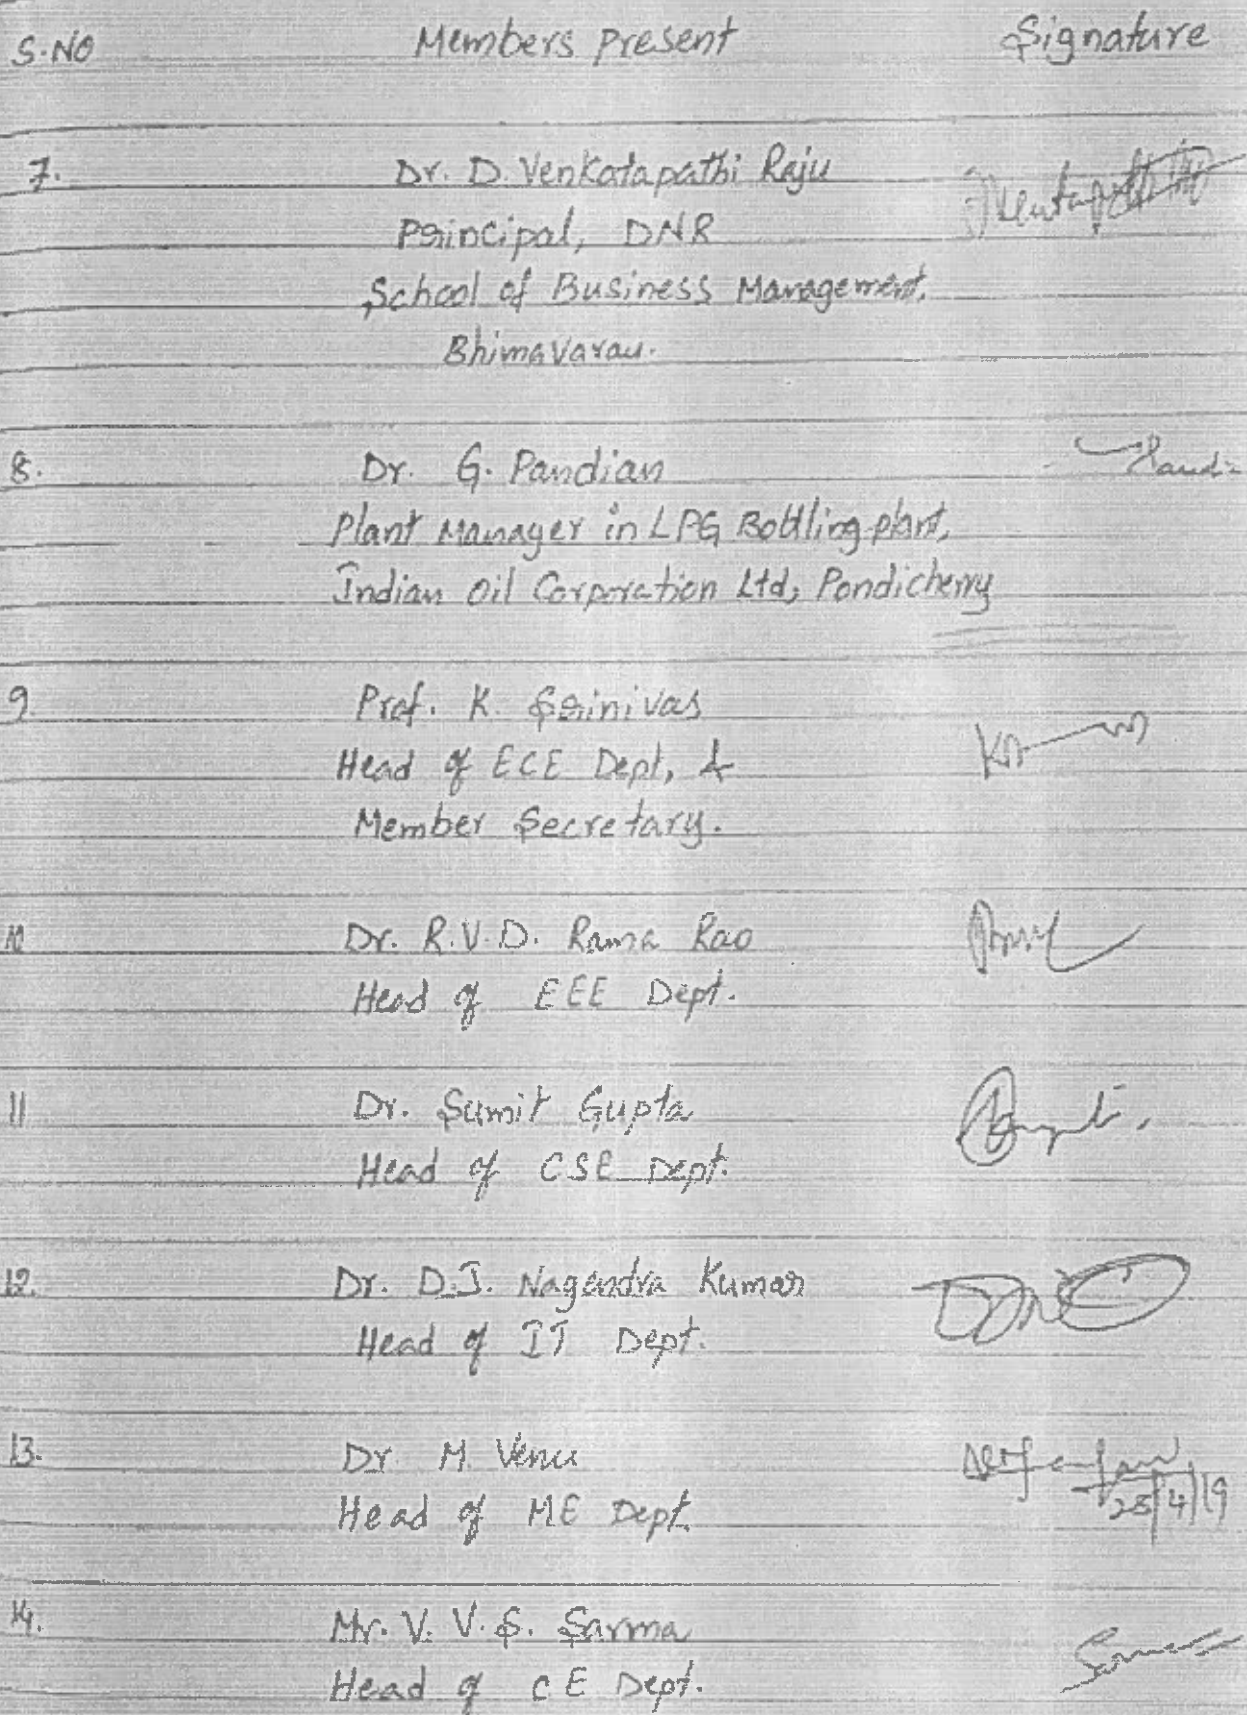 S.NO Members present Signature
7. Dr. D. Venkatapathi Raju
Principal, DNR
School of Business Management,
Bhimavaram.
8. Dr. G. Pandian
Plant Manager in LPG Bottling plant,
Indian Oil Corporation Ltd, Pondicherry
9. Prof. K. Srinivas
Head of ECE Dept, &
Member Secretary.
10 Dr. R.V.D. Rama Rao
Head of EEE Dept.
11 Dr. Sumit Gupta
Head of CSE Dept.
12. Dr. D.J. Nagendra Kumar
Head of IT Dept.
13. Dr M. Venu
Head of ME Dept.
25/4/19
14. Mr. V. V. S. Sarma
Head of CE Dept.